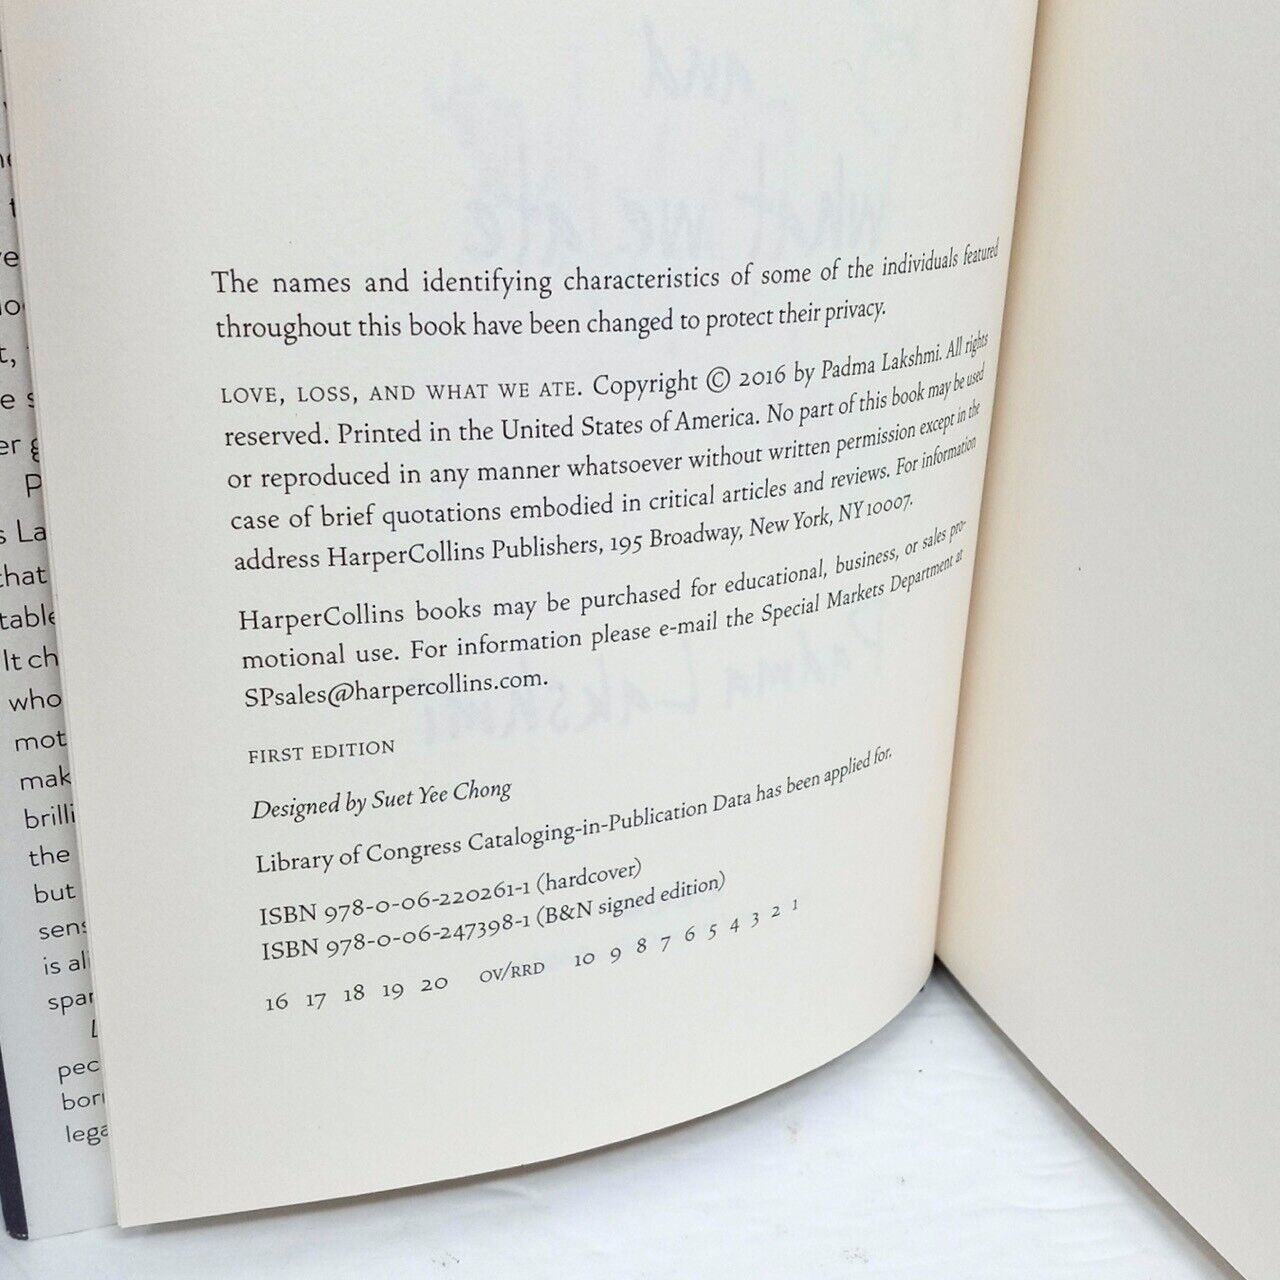 The names and identifying characteristics of some of the individuals featured
throughout this book have been changed to protect their privacy.
LOVE, LOSS, AND WHAT WE ATE. Copyright © 2016 by Padma Lakshmi. All rights
reserved. Printed in the United States of America. No part of this book may be used
or reproduced in any manner whatsoever without written permission except in the
case of brief quotations embodied in critical articles and reviews. For information
address HarperCollins Publishers, 195 Broadway, New York, NY 10007.
HarperCollins books may be purchased for educational, business, or sales pro-
motional use. For information please e-mail the Special Markets Department at
SPsales@harpercollins.com.
FIRST EDITION
Designed by Suet Yee Chong
Library of Congress Cataloging-in-Publication Data has been applied for.
ISBN 978-0-06-220261-1 (hardcover)
ISBN 978-0-06-247398-1 (B&N signed edition)
16 17 18 19 20 OV/RRD 10 9 8 7 6 5 4 3 2 1